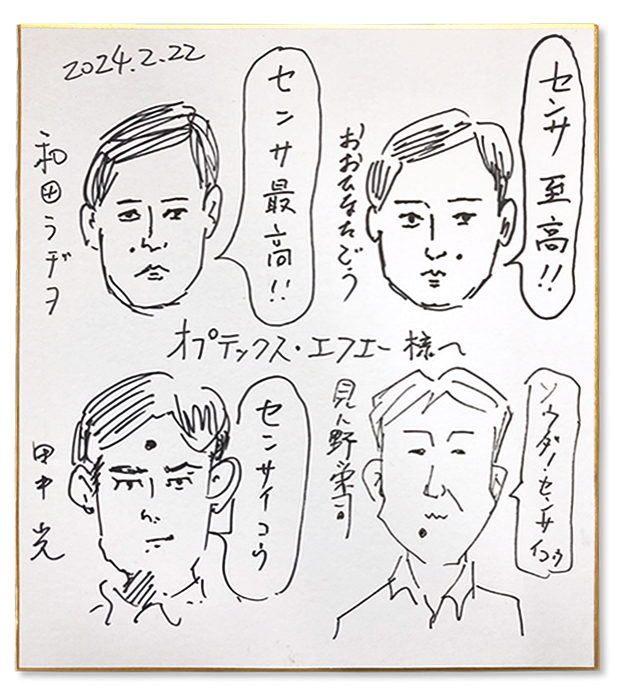 2024.2.22
センサ最高!!
和田ラヂヲ
センサ至高!!
おおひなたごう
オプテックス・エフエー様へ
センサイコウ
田中光
ソウダ!センサイコウ
見ル野栄司